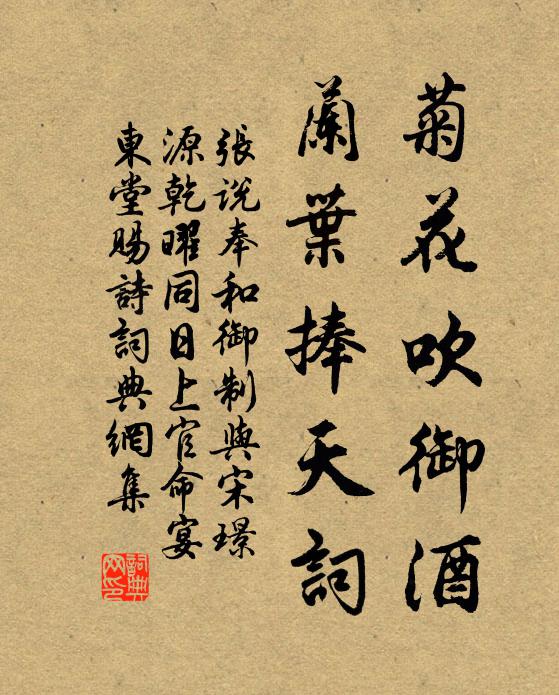 菊花吹御酒
蘭葉捧天詞
張說奉和御制與宋璟
源乾曜同日上官命宴
東堂賜詩詞典網集
詞典
网印